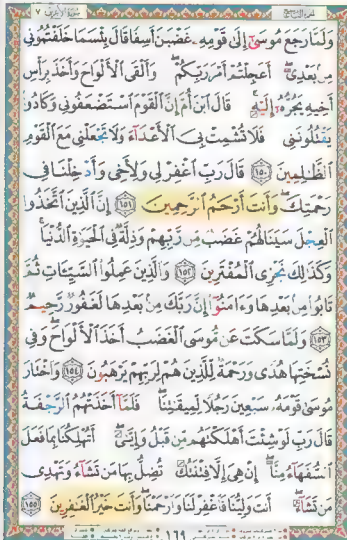 الجزء التاسع سورة الأعراف ٧
وَلَمَّا رَجَعَ مُوسَىٰٓ إِلَىٰ قَوْمِهِۦ غَضْبَٰنَ أَسِفًا قَالَ بِئْسَمَا خَلَفْتُمُونِى
مِنۢ بَعْدِىٓ أَعَجِلْتُمْ أَمْرَ رَبِّكُمْ وَأَلْقَى ٱلْأَلْوَاحَ وَأَخَذَ بِرَأْسِ
أَخِيهِ يَجُرُّهُۥٓ إِلَيْهِ قَالَ ٱبْنَ أُمَّ إِنَّ ٱلْقَوْمَ ٱسْتَضْعَفُونِى وَكَادُوا۟
يَقْتُلُونَنِى فَلَا تُشْمِتْ بِىَ ٱلْأَعْدَآءَ وَلَا تَجْعَلْنِى مَعَ ٱلْقَوْمِ
ٱلظَّٰلِمِينَ ١٥٠ قَالَ رَبِّ ٱغْفِرْ لِى وَلِأَخِى وَأَدْخِلْنَا فِى
رَحْمَتِكَ وَأَنتَ أَرْحَمُ ٱلرَّٰحِمِينَ ١٥١ إِنَّ ٱلَّذِينَ ٱتَّخَذُوا۟
ٱلْعِجْلَ سَيَنَالُهُمْ غَضَبٌ مِّن رَّبِّهِمْ وَذِلَّةٌ فِى ٱلْحَيَوٰةِ ٱلدُّنْيَا
وَكَذَٰلِكَ نَجْزِى ٱلْمُفْتَرِينَ ١٥٢ وَٱلَّذِينَ عَمِلُوا۟ ٱلسَّيِّـَٔاتِ ثُمَّ
تَابُوا۟ مِنۢ بَعْدِهَا وَءَامَنُوٓا۟ إِنَّ رَبَّكَ مِنۢ بَعْدِهَا لَغَفُورٌ رَّحِيمٌ
١٥٣ وَلَمَّا سَكَتَ عَن مُّوسَى ٱلْغَضَبُ أَخَذَ ٱلْأَلْوَاحَ وَفِى
نُسْخَتِهَا هُدًى وَرَحْمَةٌ لِّلَّذِينَ هُمْ لِرَبِّهِمْ يَرْهَبُونَ ١٥٤ وَٱخْتَارَ
مُوسَىٰ قَوْمَهُۥ سَبْعِينَ رَجُلًا لِّمِيقَٰتِنَا فَلَمَّآ أَخَذَتْهُمُ ٱلرَّجْفَةُ
قَالَ رَبِّ لَوْ شِئْتَ أَهْلَكْتَهُم مِّن قَبْلُ وَإِيَّٰىَ أَتُهْلِكُنَا بِمَا فَعَلَ
ٱلسُّفَهَآءُ مِنَّآ إِنْ هِىَ إِلَّا فِتْنَتُكَ تُضِلُّ بِهَا مَن تَشَآءُ وَتَهْدِى
مَن تَشَآءُ أَنتَ وَلِيُّنَا فَٱغْفِرْ لَنَا وَٱرْحَمْنَا وَأَنتَ خَيْرُ ٱلْغَٰفِرِينَ ١٥٥
١٦٩